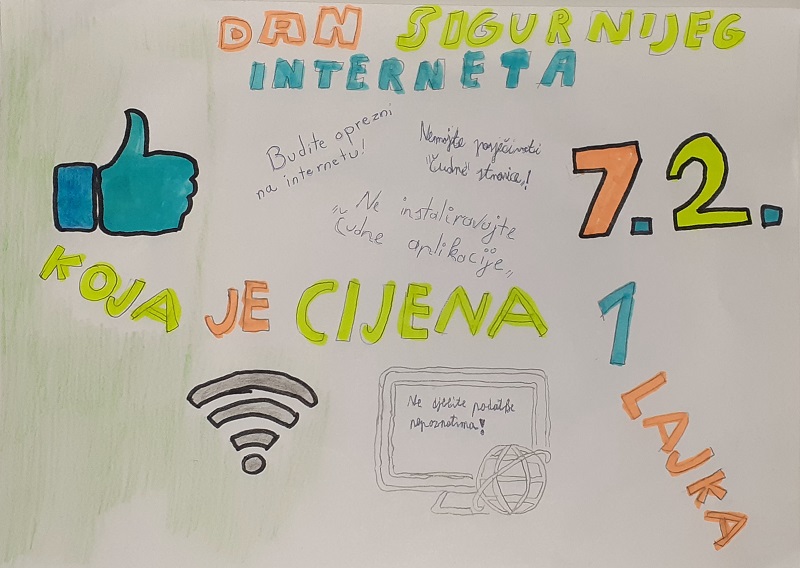 DAN SIGURNIJEG
INTERNETA
Budite oprezni
na internetu!
Nemojte posjećivati
"čudne" stranice,!
"Ne instaliravajte
čudne aplikacije"
7.2.
KOJA JE CIJENA 1
LAJKA
Ne djelite podatke
nepoznatima!